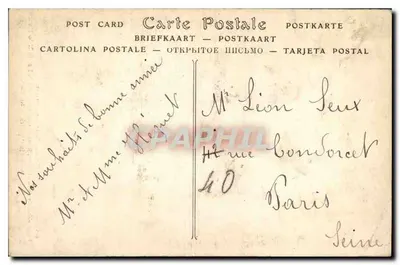 POST CARD Carte Postale POSTKARTE
BRIEFKAART — POSTKAART
CARTOLINA POSTALE — ОТКРЫТОЕ ПИСЬМО — TARJETA POSTAL
Nos souhaits de bonne année
Mr et Mme
Mr Léon Seux
42 rue Condorcet
40
Paris
Seine
CPAPHIL